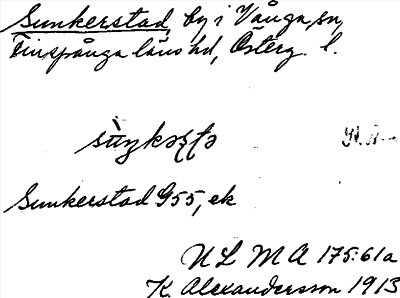 Sunkerstad, by i Vånga sn,
Finspånga läns hd, Österg. l.
Sunkerstad 955, ek
ULMA 175:61a
K. Alexandersson 1913